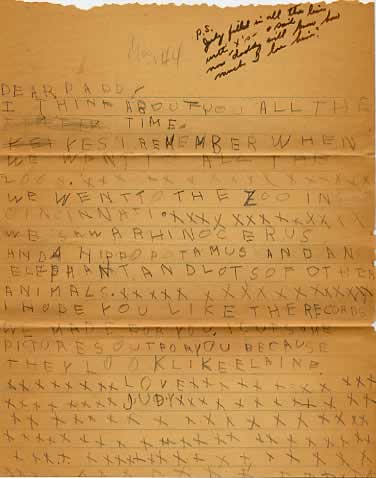 P.S.
Judy filled in all this line
with "x's" - & said
now daddy will know how
much I love him!
DEAR DADD
I THINK ABOUT YOU ALL THE
TIME.
YES I REMEMBER WHEN
WE WENT ALL THE
ZOOS. XXX XX XXX XX XX X
WE WENT TO THE ZOO IN
CINCINNATI. XXXXX XXXXXXX X
WE SAW A RHINOCERUS
AND A HIPPOPOTAMUS AND AN
ELEPHANT AND LOTS OF OTHER
ANIMALS. XXXXX XXXXXXXXXX
I HOPE YOU LIKE THE RECORDS
WE MADE FOR YOU. I CUT SOME
PICTURES OUT FOR YOU BECAUSE
THEY LOOK LIKE ELAINE
XXXXXXXX LOVE XXXXX XX XXX
XXXXXXXX JUDY XXX X X X XX XX
X X X XX XX X XXXX X X X X X X
X X X X X X X X X X X X X X X X
XXXX XX XXX XX XXX X X X XX
X XX.X. XXXXXX XX X X XXX X
X X X X X X X X X X X X X X